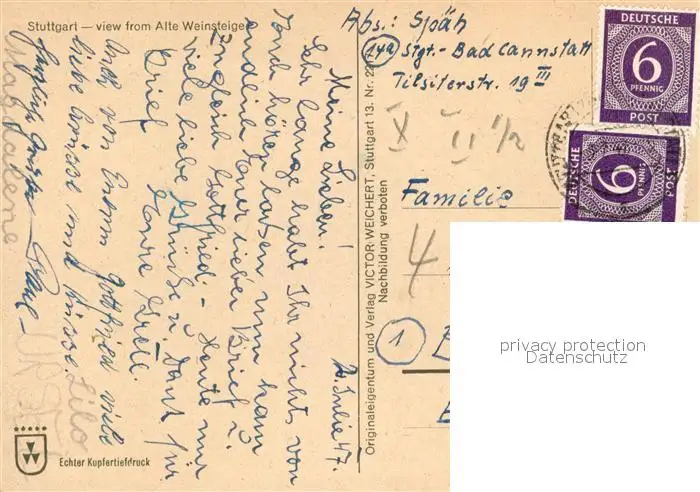 Stuttgart — view from Alte Weinsteige
Abs.: Späh
(14a) Stgt.- Bad Cannstatt
Tilsiterstr. 19 III
DEUTSCHE
6
PFENNIG
POST
DEUTSCHE
6
PFENNIG
POST
X II 1/2
Familie
4
1
privacy protection
Datenschutz
Originaleigentum und Verlag VICTOR WEICHERT, Stuttgart 13. Nr. 22
Nachbildung verboten
20. Julie 47.
Meine Lieben!
Sehr lange habt Ihr nichts von
hören lassen nun kam
endlich Euer lieber Brief u.
zugleich Gottfried - Heute nur
viele liebe Grüße u. Dank für
Brief
Eure Gretl.
Auch von Eurem Gottfried viele
liebe Grüsse und Küsse.
Herzliche Grüsse
Magdalene
Lilo
URSEL
Echter Kupfertiefdruck